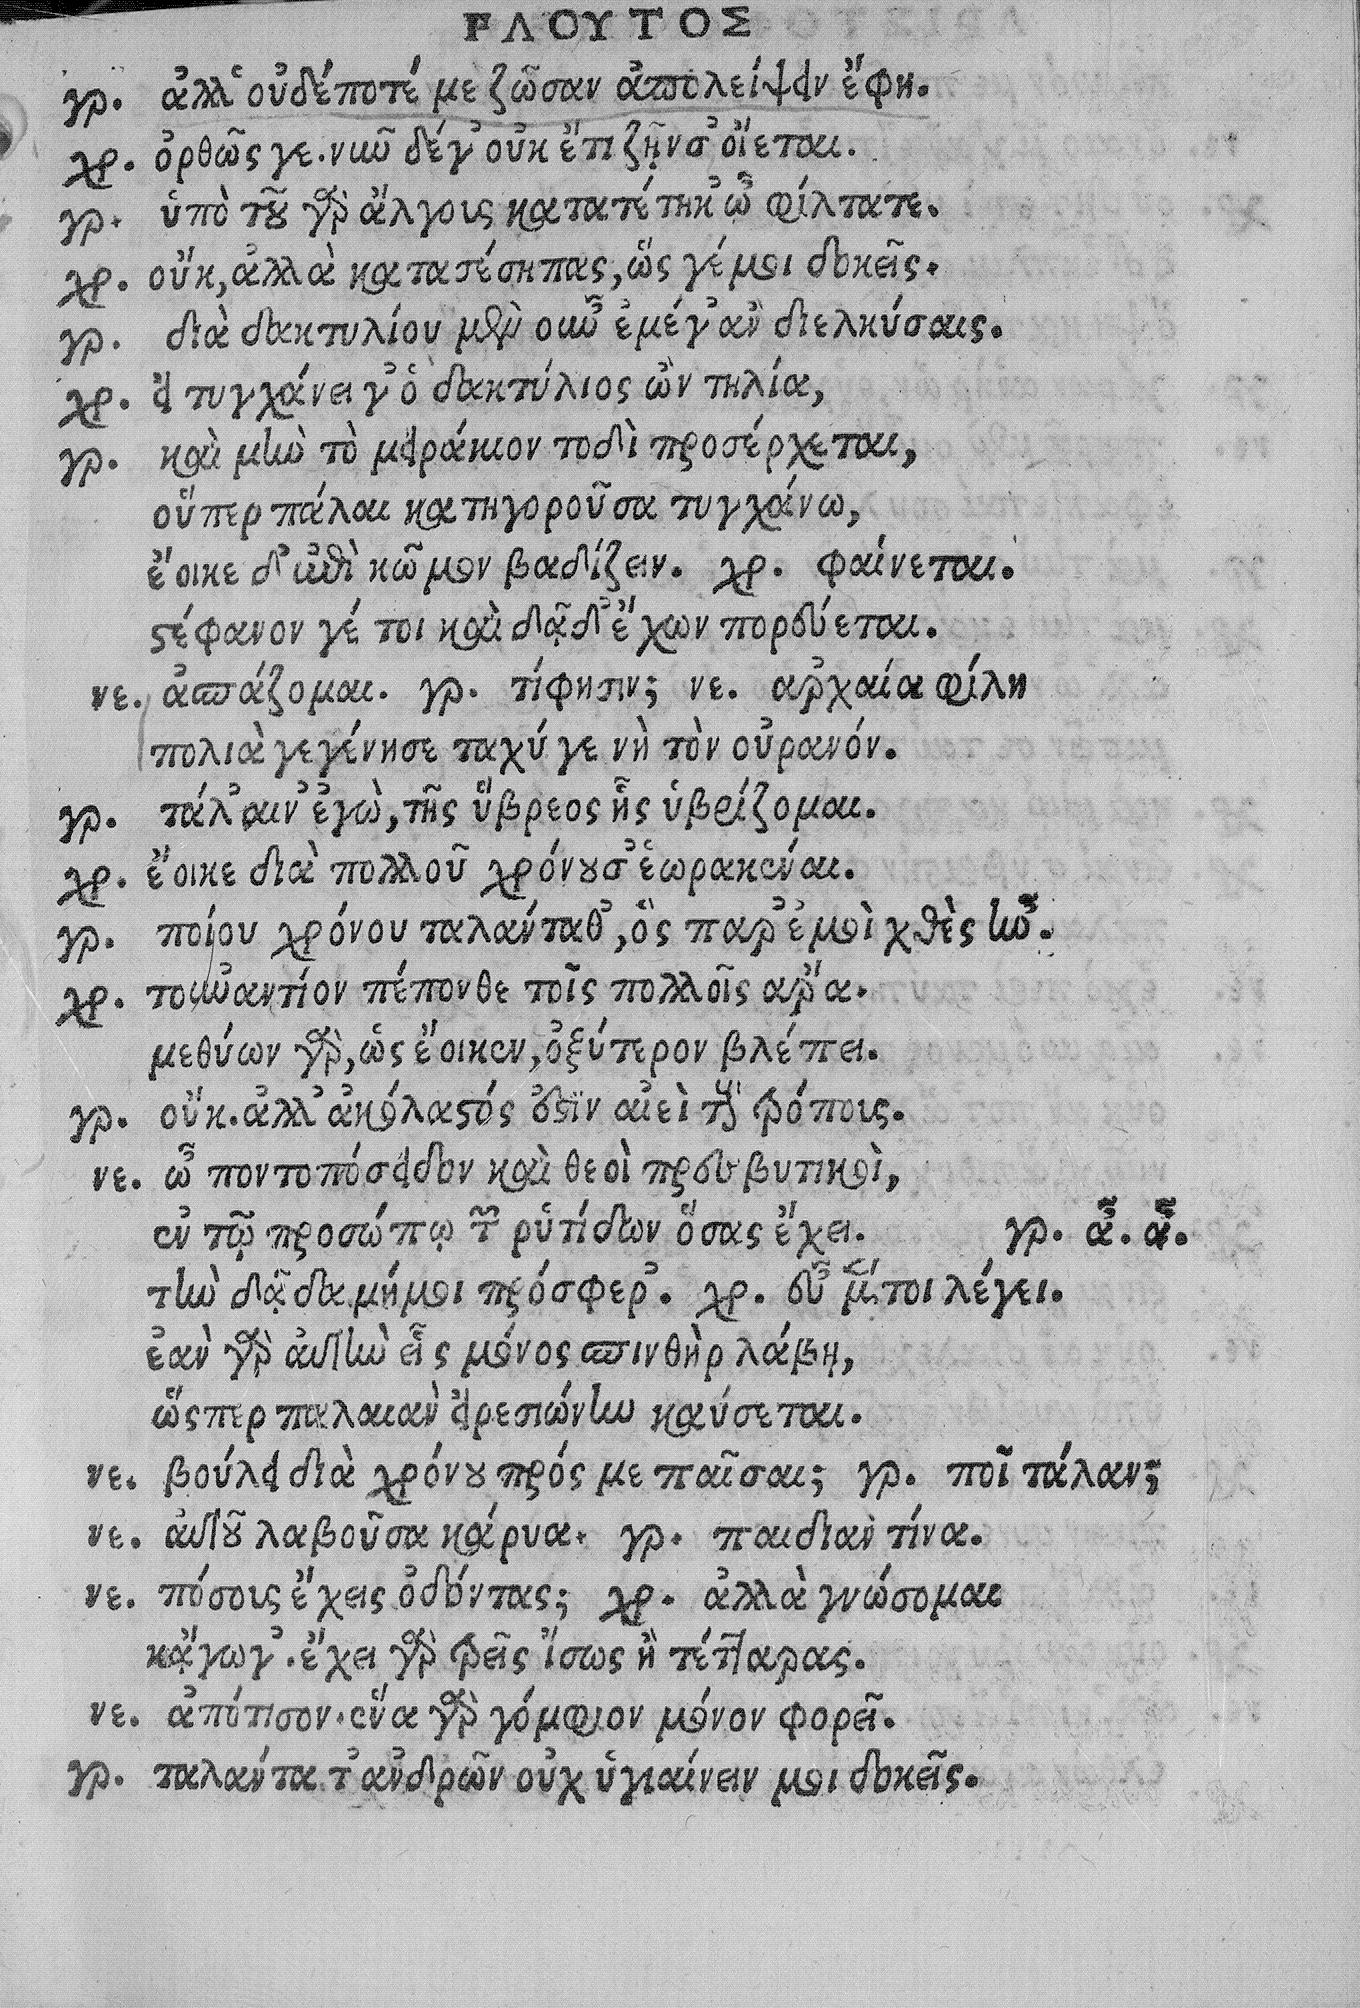 ΠΛΟΥΤΟΣ
γρ. ἀλλ' οὐδέποτέ με ζῶσαν ἀπολείψειν ἔφη.
χρ. ὀρθῶς γε. νῦν δέ γ' οὐκ ἔτι ζῇν σ' οἴεται.
γρ. ὑπὸ τοῦ γὰρ ἄλγους κατατέτηκ' ὦ φίλτατε.
χρ. οὔκ, ἀλλὰ κατασέσηπας, ὥς γέ μοι δοκεῖς.
γρ. διὰ δακτυλίου μὲν οὖν ἐμέ γ' ἂν διελκύσαις.
χρ. εἰ τυγχάνει γ' ὁ δακτύλιος ὢν τηλία,
γρ. καὶ μὴν τὸ μειράκιον τοδὶ προσέρχεται,
οὗπερ πάλαι κατηγοροῦσα τυγχάνω,
ἔοικε δ' ἐπὶ κῶμον βαδίζειν. χρ. φαίνεται.
στέφανον γέ τοι καὶ δᾷδ' ἔχων πορεύεται.
νε. ἀσπάζομαι. γρ. τί φησιν; νε. ἀρχαία φίλη
πολιὰ γεγένησε ταχύ γε νὴ τὸν οὐρανόν.
γρ. τάλαιν' ἐγὼ, τῆς ὕβρεος ἧς ὑβρίζομαι.
χρ. ἔοικε διὰ πολλοῦ χρόνου σ' ἑωρακέναι.
γρ. ποίου χρόνου ταλάνταθ', ὃς παρ' ἐμοὶ χθὲς ἦν.
χρ. τοὐναντίον πέπονθε τοῖς πολλοῖς ἄρα.
μεθύων γὰρ, ὡς ἔοικεν, ὀξύτερον βλέπει.
γρ. οὔκ. ἀλλ' ἀκόλαστός ἐστιν αἰεὶ τοῖς τρόποις.
νε. ὦ ποντοπόσειδον καὶ θεοὶ πρεσβυτικοὶ,
ἐν τῷ προσώπῳ τῶν ῥυτίδων ὅσας ἔχει. γρ. ἆ. ἆ.
τὴν δᾷδα μή μοι πρόσφερ'. χρ. εὖ μέντοι λέγει.
ἐὰν γὰρ αὐτὴν εἷς μόνος σπινθὴρ λάβῃ,
ὥσπερ παλαιὰν εἰρεσιώνην καύσεται.
νε. βούλει διὰ χρόνου πρός με παῖσαι; γρ. ποῖ τάλαν;
νε. αὐτοῦ λαβοῦσα κάρυα. γρ. παιδιὰν τίνα.
νε. πόσους ἔχεις ὀδόντας; χρ. ἀλλὰ γνώσομαι
κᾄγωγ'. ἔχει γὰρ τρεῖς ἴσως ἢ τέτταρας.
νε. ἀπότισον. ἕνα γὰρ γόμφιον μόνον φορεῖ.
γρ. ταλάντατ' ἀνδρῶν οὐχ ὑγιαίνειν μοι δοκεῖς.